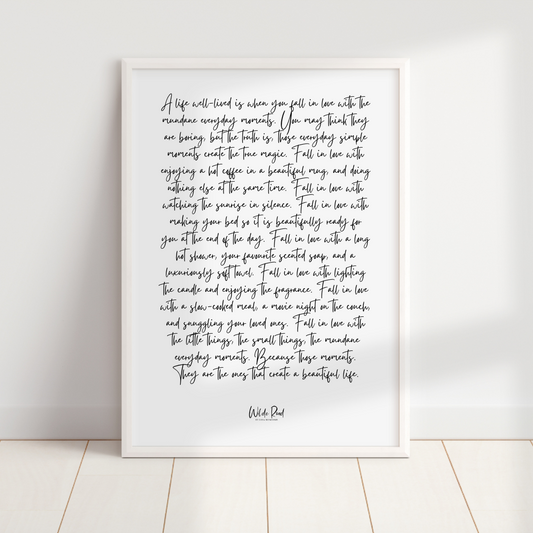 A life well-lived is when you fall in love with the
mundane everyday moments. You may think they
are boring, but the truth is, those everyday simple
moments create the true magic. Fall in love with
enjoying a hot coffee in a beautiful mug, and doing
nothing else at the same time. Fall in love with
watching the sunrise in silence. Fall in love with
making your bed so it is beautifully ready for
you at the end of the day. Fall in love with a long
hot shower, your favourite scented soap, and a
luxuriously soft towel. Fall in love with lighting
the candle and enjoying the fragrance. Fall in love
with a slow-cooked meal, a movie night on the couch,
and snuggling your loved ones. Fall in love with
the little things, the small things, the mundane
everyday moments. Because those moments.
They are the ones that create a beautiful life.
Wilde Road